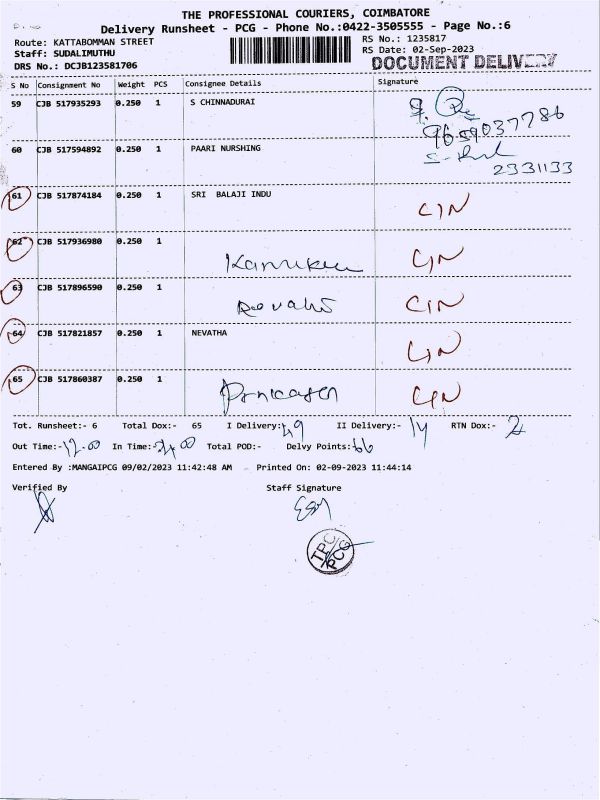 THE PROFESSIONAL COURIERS, COIMBATORE
Delivery Runsheet - PCG - Phone No.:0422-3505555 - Page No.:6
Route: KATTABOMMAN STREET RS No.: 1235817
Staff: SUDALIMUTHU RS Date: 02-Sep-2023
DRS No.: DCJB123581706 DOCUMENT DELIVERY
S No Consignment No Weight PCS Consignee Details Signature
59 CJB 517935293 0.250 1 S CHINNADURAI
9659037786
60 CJB 517594892 0.250 1 PAARI NURSHING
2331133
61 CJB 517874184 0.250 1 SRI BALAJI INDU CIN
62 CJB 517936980 0.250 1 CIN
63 CJB 517896590 0.250 1 CIN
64 CJB 517821857 0.250 1 NEVATHA CIN
65 CJB 517860387 0.250 1 CIN
Tot. Runsheet:- 6 Total Dox:- 65 I Delivery:- 49 II Delivery:- 14 RTN Dox:- 2
Out Time:- 12.00 In Time:- Total POD:- Delvy Points:- 66
Entered By :MANGAIPCG 09/02/2023 11:42:48 AM Printed On: 02-09-2023 11:44:14
Verified By Staff Signature
TPC
PCG